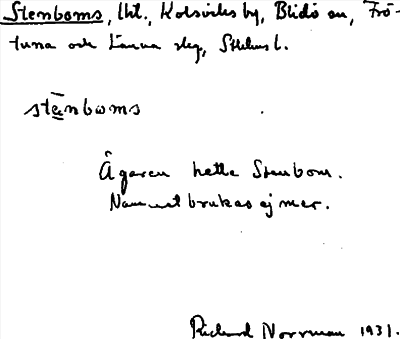 Stenboms, lht., Kolsviks by, Blidö sn, Frö-
tuna och Länna slg, Sthlms l.
stēnboms
Ägaren hette Stenbom.
Namnet brukas ej mer.
Rickard Norrman 1931.